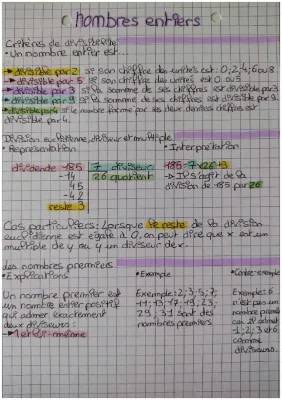 Nombres entiers
Critères de divisibilité
• Un nombre entier est...
→ divisible par 2 si son chiffre des unités est : 0;2;4;6 ou 8.
→ divisible par 5 si son chiffre des unités est 0 ou 5
→ divisible par 3 si la somme de ses chiffres est divisible par 3
→ divisible par 9 si la somme de ses chiffres est divisible par 9.
→ divisible par 4 si le nombre formé par ses deux derniers chiffres est
divisible par 4.
Division euclidienne, diviseur et multiple
• Représentation
• Interprétation
dividende 185 7 diviseur
-14 26 quotient
45
-42
reste 3
185 = 7×26+3
→ Il s'agit de la
division de 185 par 26
Cas particuliers : Lorsque le reste de la division
euclidienne est égale à 0, on peut dire que x est un
multiple de y ou y un diviseur de x.
des nombres premiers
• Explications
• Exemple
• Contre-exemple
Un nombre premier est
un nombre entier positif
qui admet exactement
deux diviseurs :
→ 1 et lui-même
Exemple : 2; 3; 5; 7;
11; 13; 17; 19; 23;
29; 31 sont des
nombres premiers
Exemple : 6
n'est pas un
nombre premier
car il admet
1; 2; 3 et 6
comme
diviseurs.